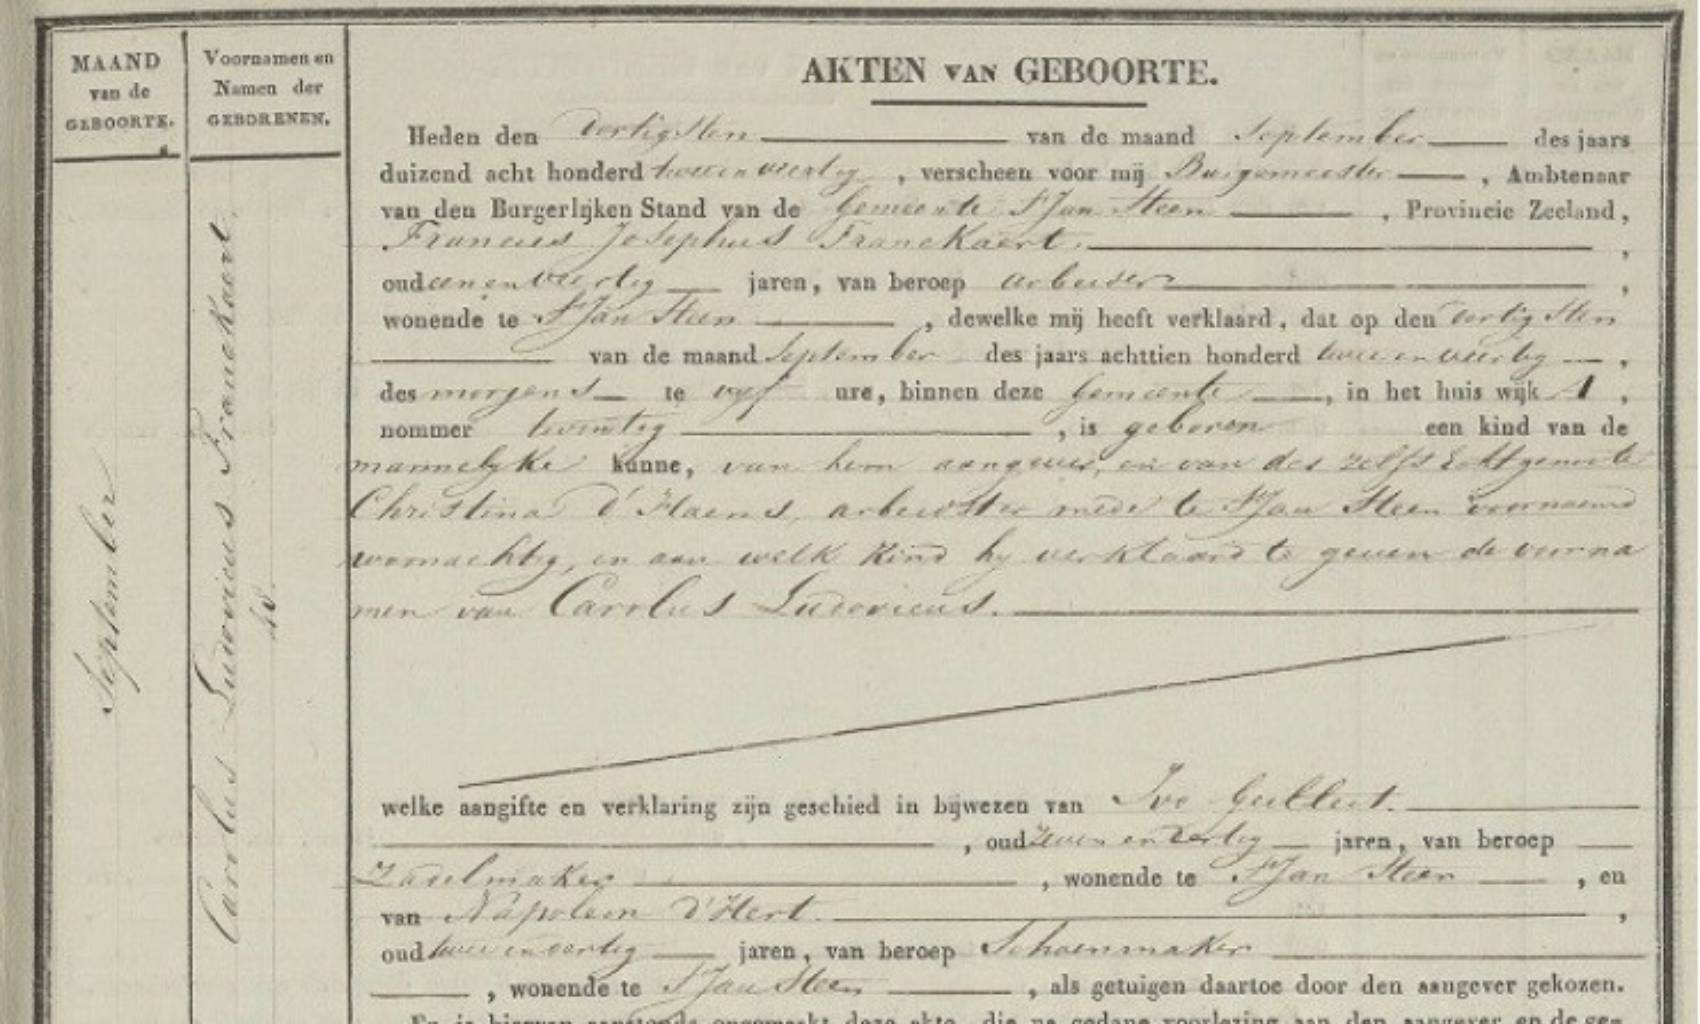 MAAND
van de
GEBOORTE.
Voornamen en
Namen der
GEBORENEN.
September
Carolus Ludovicus Franckaert.
48.
AKTEN VAN GEBOORTE.
Heden den dertigsten van de maand September des jaars
duizend acht honderd twee en veertig, verscheen voor mij Burgemeester, Ambtenaar
van den Burgerlijken Stand van de Gemeente St Jan Steen, Provincie Zeeland,
Francies Josephus Franckaert.,
oud een en veertig jaren, van beroep arbeider,
wonende te St Jan Steen, dewelke mij heeft verklaard, dat op den dertigsten
van de maand September des jaars achttien honderd twee en veertig,
des morgens te vyf ure, binnen deze Gemeente, in het huis wijk A,
nommer twintig, is geboren een kind van de
mannelyke kunne, van hem aangever, en van des zelfs Echtgenoote
Christina d'Haens, arbeidster mede te St Jan Steen voornoemd
woonachtig, en aan welk kind hy verklaard te geven de voorna
men van Carolus Ludovicus.
welke aangifte en verklaring zijn geschied in bijwezen van Ivo
, oud zeven en dertig jaren, van beroep
Zadelmaker, wonende te St Jan Steen, en
van Napoleon d'Hert.,
oud twee en dertig jaren, van beroep Schoenmaker
, wonende te St Jan Steen, als getuigen daartoe door den aangever gekozen.
En is hiervan aanstonds opgemaakt deze akte, die na gedane voorlezing aan den aangever en de ge-